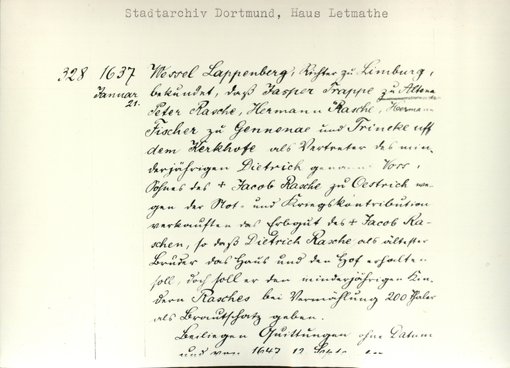 Stadtarchiv Dortmund, Haus Letmathe
328 1637 Wessel Lappenberg, Richter zu Limburg,
Januar 21. bekundet, daß Jasper Trappe zu Altena
Peter Rasche, Hermann Rasche, Herman
Fischer zu Gennenae und Trineke uff
dem Kerkhofe als Vertreter des min-
derjährigen Dietrich genannt Voss,
Sohnes des + Jacob Rasche zu Oestrich we-
gen der Not- und Kriegskontribution
verkauften das Erbgut des + Jacob Ra-
schen, so daß Dietrich Rasche als ältester
Bruder das Haus und den Hof erhalten
soll, doch soll er den minderjährigen Kin-
dern Rasches bei Vermählung 200 Thaler
als Brautschatz geben.
Beiliegen Quittungen ohne Datum
und von 1647 12